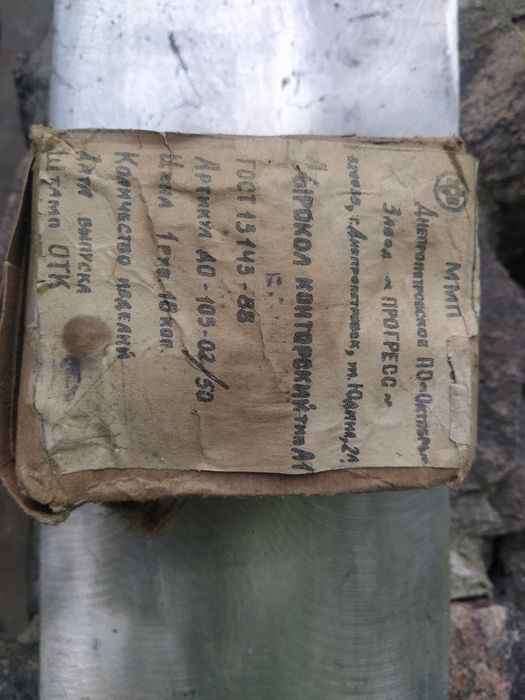 ММП
Днепропетровское ПО "Октябрь"
Завод "ПРОГРЕСС"
320015, г. Днепропетровск, ул. Юдина, 21.
ДЫРОКОЛ КОНТОРСКИЙ тип Д1
ГОСТ 13143-88
Артикул ДО-105-02/50
Цена 1 руб. 18 коп.
Количество изделий
Дата выпуска
Штамп ОТК